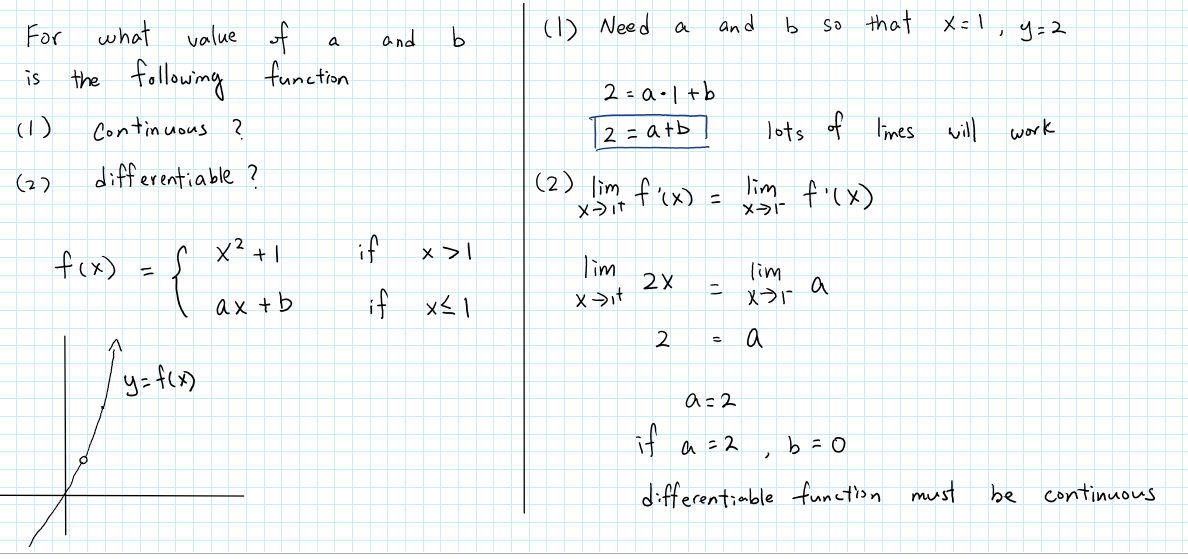 For what value of a and b
is the following function
(1) Continuous ?
(2) differentiable ?
f(x) = { x² + 1 if x > 1
ax + b if x ≤ 1
y = f(x)
(1) Need a and b so that x = 1 , y = 2
2 = a · 1 + b
2 = a + b lots of lines will work
(2) lim x→1⁺ f'(x) = lim x→1⁻ f'(x)
lim x→1⁺ 2x = lim x→1⁻ a
2 = a
a = 2
if a = 2 , b = 0
differentiable function must be continuous